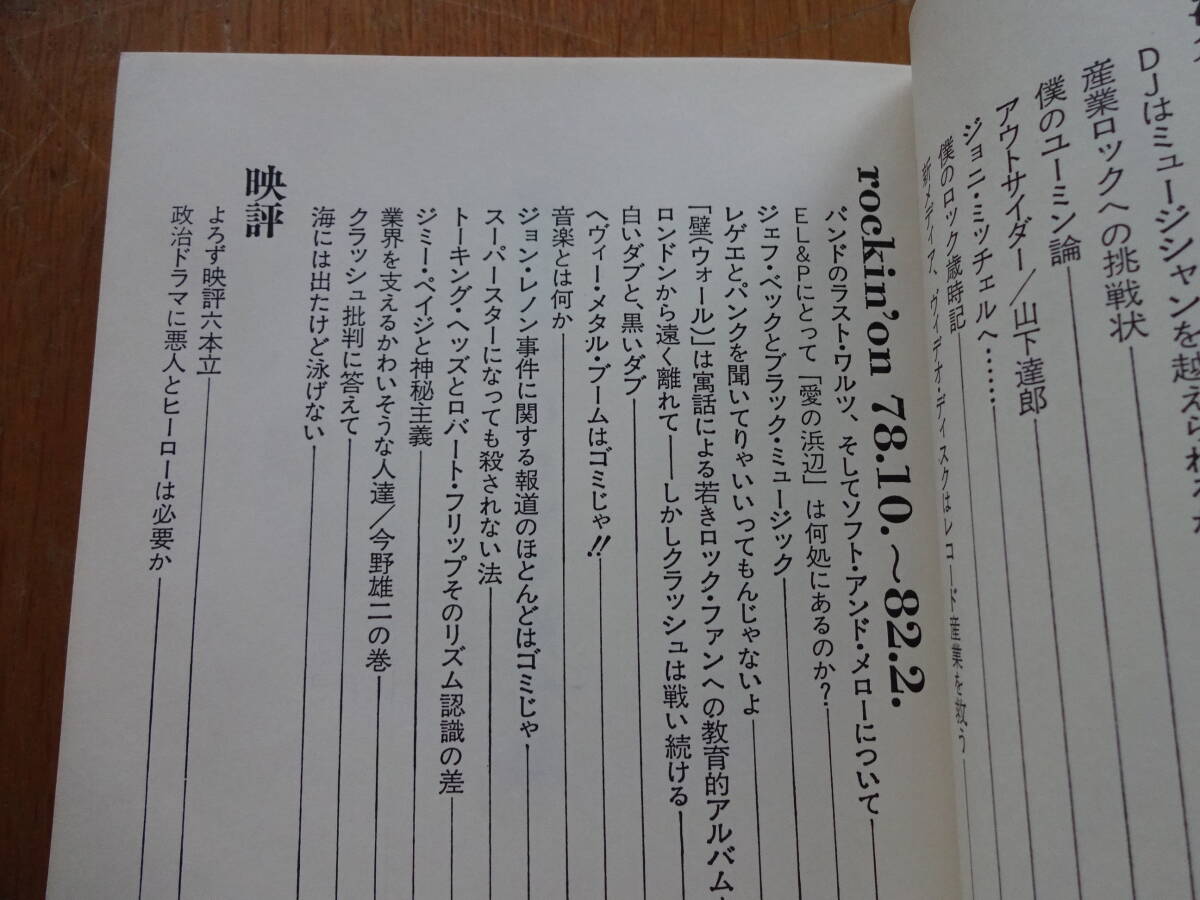 DJはミュージシャンを越えられるか
産業ロックへの挑戦状
僕のユーミン論
アウトサイダー/山下達郎
ジョニ・ミッチェルへ……
僕のロック歳時記
新メディア、ヴィデオ・ディスクはレコード産業を救う
rockin'on 78.10.〜82.2.
バンドのラスト・ワルツ、そしてソフト・アンド・メローについて
EL&Pにとって「愛の浜辺」は何処にあるのか?
ジェフ・ベックとブラック・ミュージック
レゲエとパンクを聞いてりゃいいってもんじゃないよ
「壁(ウォール)」は寓話による若きロック・ファンへの教育的アルバム
ロンドンから遠く離れて――しかしクラッシュは戦い続ける
白いダブと、黒いダブ
ヘヴィー・メタル・ブームはゴミじゃ!!
音楽とは何か
ジョン・レノン事件に関する報道のほとんどはゴミじゃ
スーパースターになっても殺されない法
トーキング・ヘッズとロバート・フリップそのリズム認識の差
ジミー・ペイジと神秘主義
業界を支えるかわいそうな人達/今野雄二の巻
クラッシュ批判に答えて
海には出たけど泳げない
映評
よろず映評六本立
政治ドラマに悪人とヒーローは必要か